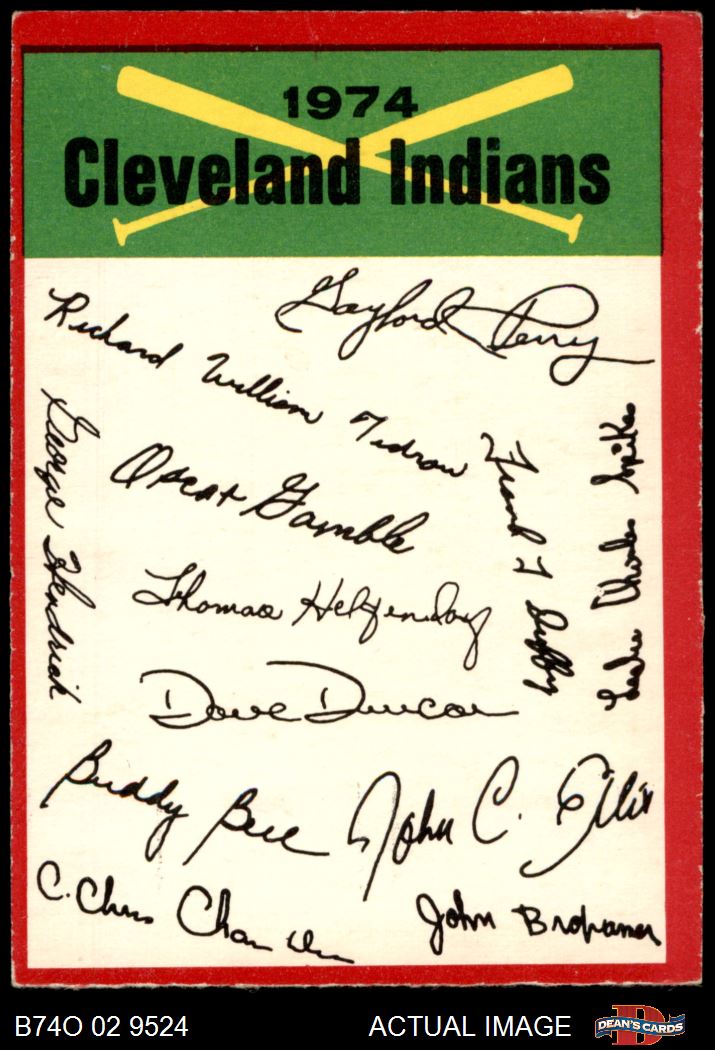 1974
Cleveland Indians
Gaylord Perry
Richard William Tidrow
George Hendrick
Oscar Gamble
Frank T Duffy
Leslie Charles Spikes
Thomas
Dave Duncan
Buddy Bell
John C. Ellis
C. Chris Cham
John
B74O 02 9524
ACTUAL IMAGE
D
DEAN'S CARDS